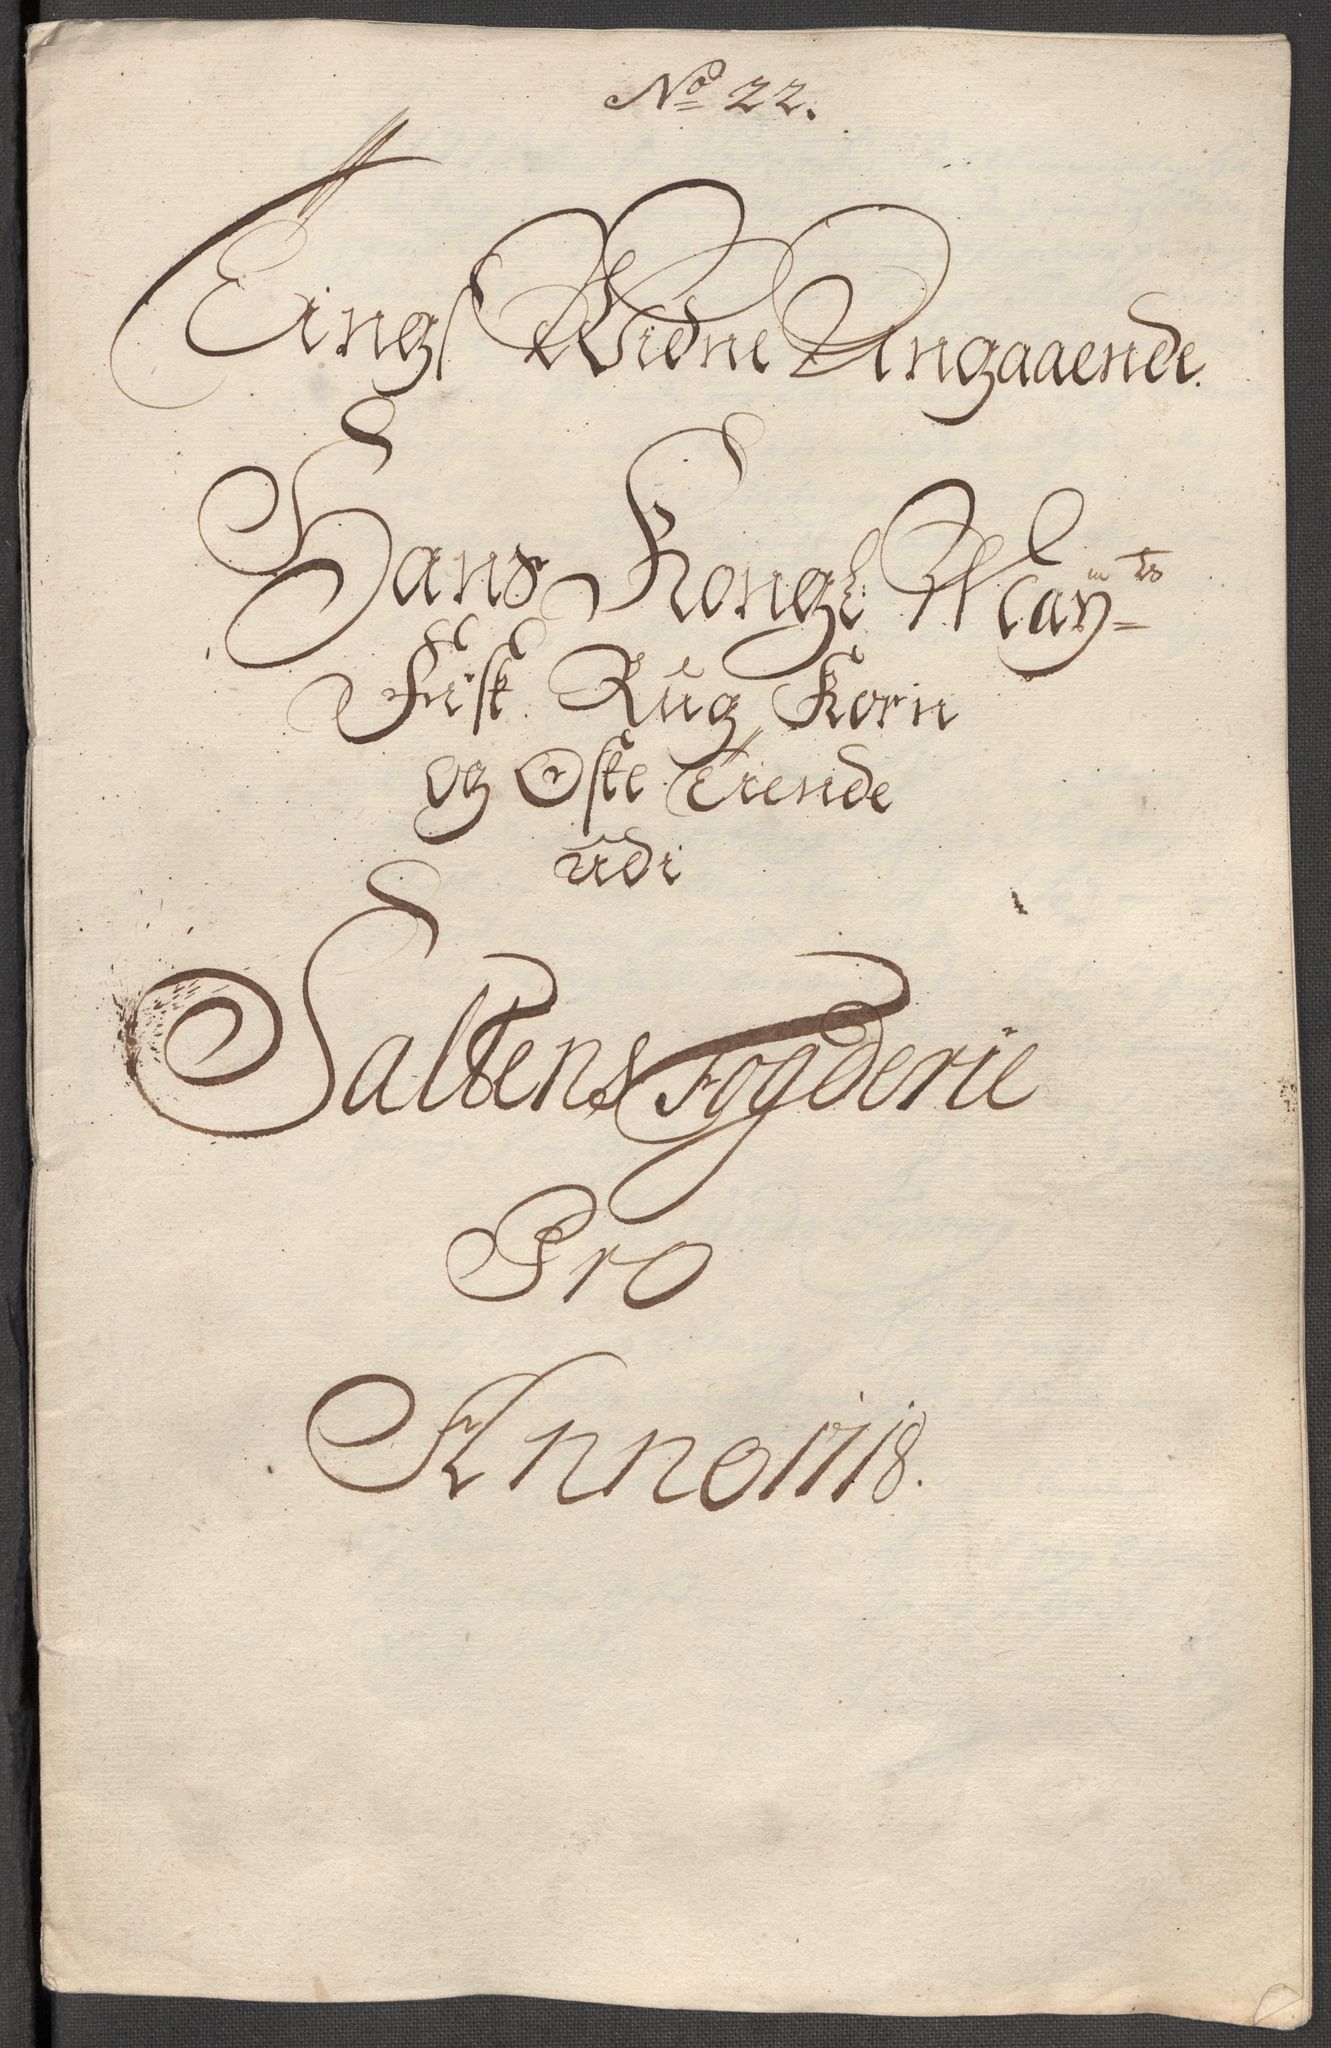 No 22.
Tings Widne Angaaende.
Hans Kongl Maÿts
Fisk Rug Korn
og Oste Tiende
udi
Saltens Fogderie
Pro
Anno 1718.